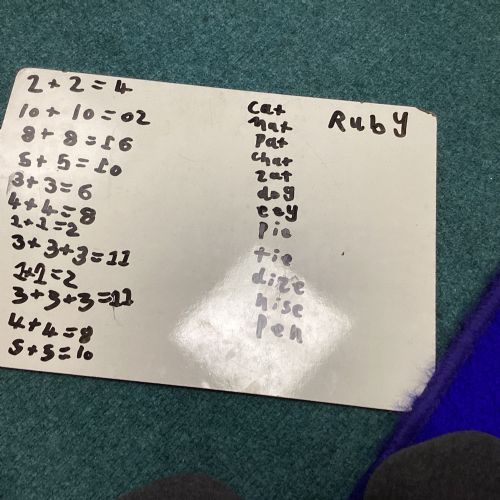 2 + 2 = 4
10 + 10 = 02
8 + 8 = 16
5 + 5 = 10
3 + 3 = 6
4 + 4 = 8
1 + 1 = 2
3 + 3 + 3 = 11
1 + 1 = 2
3 + 3 + 3 = 11
4 + 4 = 8
5 + 5 = 10
cat
mat
pat
chat
zat
dog
eey
pie
tie
dize
nise
pen
Ruby